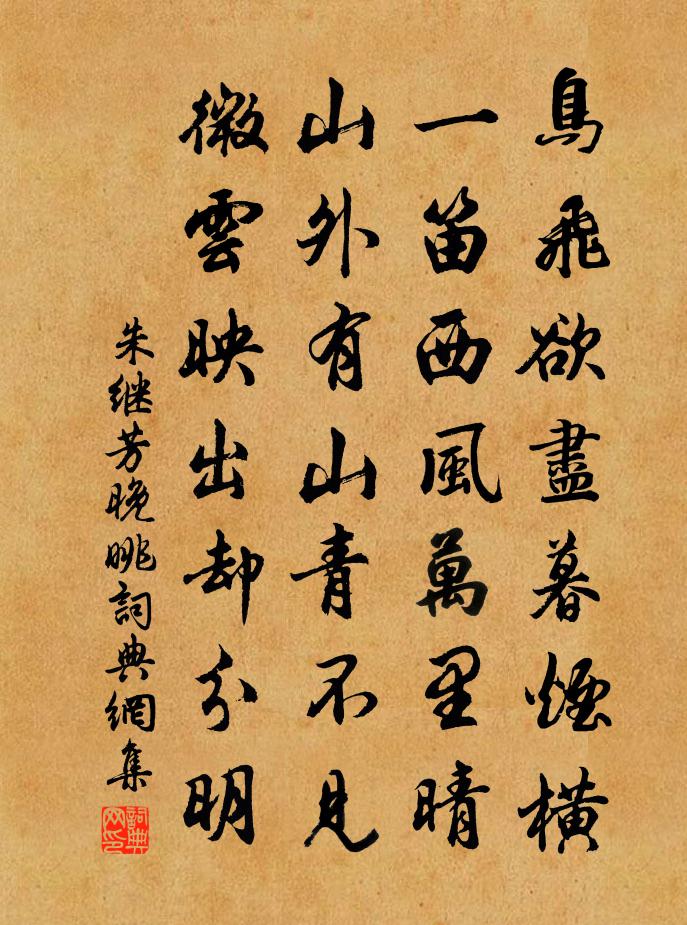 鳥飛欲盡暮煙橫
一笛西風萬里晴
山外有山青不見
微雲映出却分明
朱继芳晚眺詞典網集
詞典网印